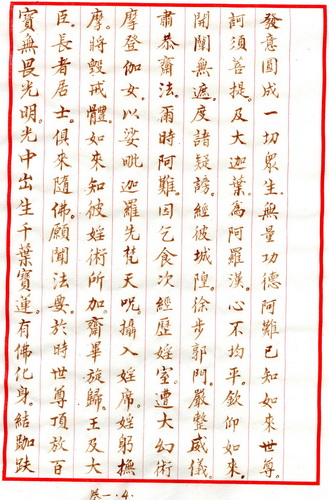 發意圓成一切眾生。無量功德阿難已知如來世尊。
訶須菩提。及大迦葉。為阿羅漢。心不均平。欽仰如來。
開闡無遮。度諸疑謗。經彼城隍。徐步郭門。嚴整威儀。
肅恭齋法。爾時阿難。因乞食次。經歷婬室。遭大幻術
摩登伽女。以娑毗迦羅先梵天咒。攝入婬席。婬躬撫
摩。將毀戒體。如來知彼婬術所加。齋畢旋歸。王及大
臣。長者居士。俱來隨佛。願聞法要。於時世尊。頂放百
寶無畏光明。光中出生千葉寶蓮。有佛化身。結跏趺
卷一.4.